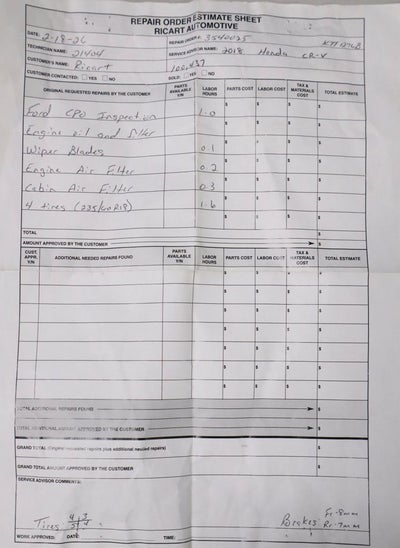 REPAIR ORDER ESTIMATE SHEET
RICART AUTOMOTIVE
DATE: 2-18-26 REPAIR ORDER #: 3540025
TECHNICIAN NAME: 21404 SERVICE ADVISOR NAME: 2018 Honda CR-V
CUSTOMER'S NAME: Ricart 100,437
CUSTOMER CONTACTED: YES NO SOLD: YES NO
ORIGINAL REQUESTED REPAIRS BY THE CUSTOMER PARTS AVAILABLE Y/N LABOR HOURS PARTS COST LABOR COST TAX & MATERIALS COST TOTAL ESTIMATE
Ford CPO Inspection 1.0 $ $ $ $
Engine oil and filter $ $ $ $
Wiper Blades 0.1 $ $ $ $
Engine Air Filter 0.2 $ $ $ $
Cabin Air Filter 0.3 $ $ $ $
4 tires (235/60R18) 1.6 $ $ $ $
TOTAL $
AMOUNT APPROVED BY THE CUSTOMER $
CUST. APPR. Y/N ADDITIONAL NEEDED REPAIRS FOUND PARTS AVAILABLE Y/N LABOR HOURS PARTS COST LABOR COST TAX & MATERIALS COST TOTAL ESTIMATE
$ $ $ $
$ $ $ $
$ $ $ $
$ $ $ $
$ $ $ $
$ $ $ $
$ $ $ $
TOTAL ADDITIONAL REPAIRS FOUND $
TOTAL ADDITIONAL AMOUNT APPROVED BY THE CUSTOMER $
GRAND TOTAL (Original requested repairs plus additional needed repairs) $
GRAND TOTAL AMOUNT APPROVED BY THE CUSTOMER $
SERVICE ADVISOR COMMENTS:
Tires 4 3 Brakes Fr-8mm
3 4 Rr-7mm
WORK APPROVED: DATE: TIME: